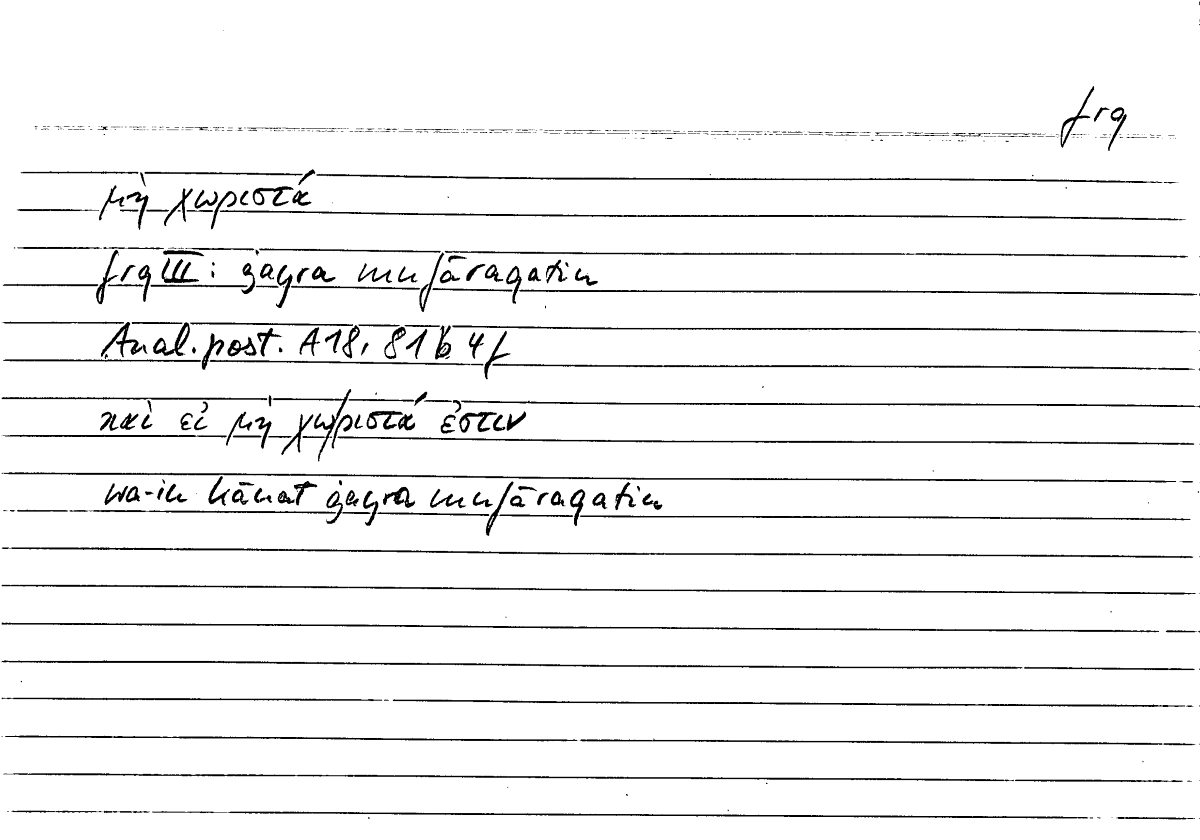 frq
μὴ χωριστά
frq III: ġayra mufāraqatin
Anal. post. A 18, 81 b 4 f
καὶ εἰ μὴ χωριστά ἐστιν
wa-in kānat ġayra mufāraqatin